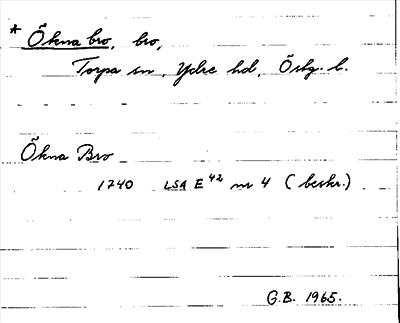 * Ökna bro, bro,
Torpa sn, Ydre hd, Östg. l.
Ökna Bro
1740 LSA E42 nr 4 (beskr.)
G.B. 1965.